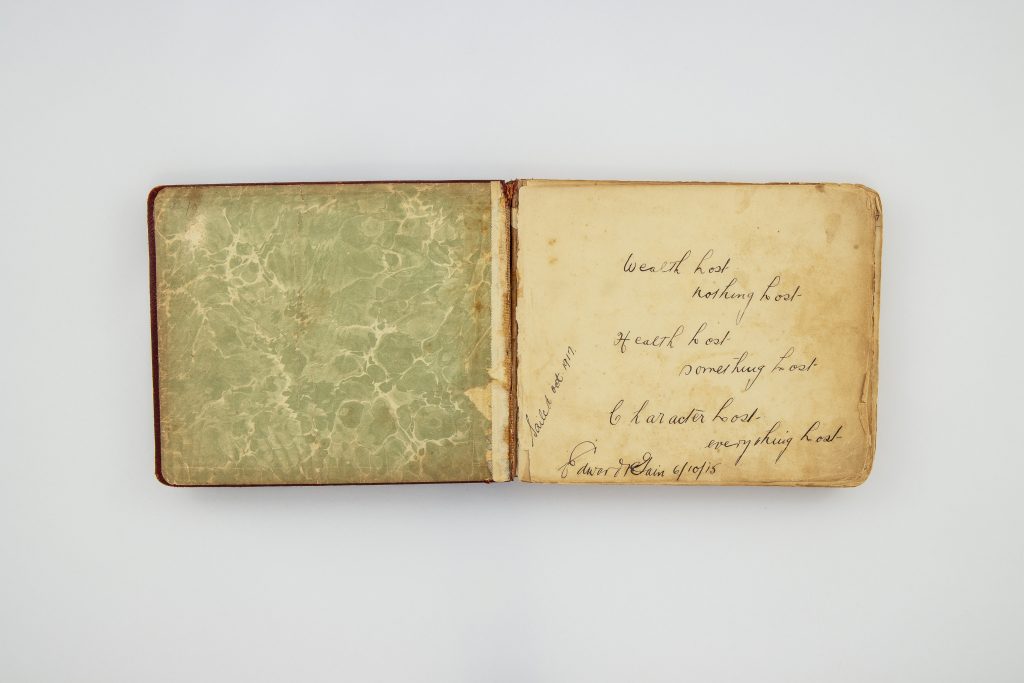 Wealth Lost
nothing Lost
Health Lost
something Lost
Character Lost
everything Lost
Edward Gain 6/10/15
Sailed oct 1917.